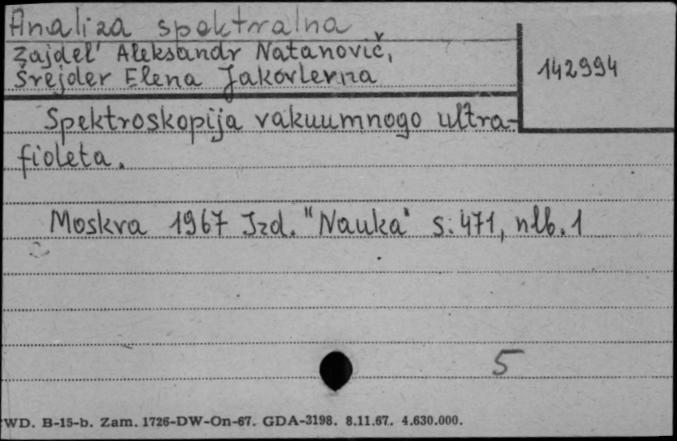 Analiza spektralna
Zajdel' Aleksandr Natanovič,
Šrejder Elena Jakovlevna
142994
Spektroskopija vakuumnogo ultra-
fioleta.
Moskva 1967 Izd. "Nauka" s. 471, nlb. 1
5
WD. B-15-b. Zam. 1726-DW-On-67. GDA-3198. 8.11.67. 4.630.000.